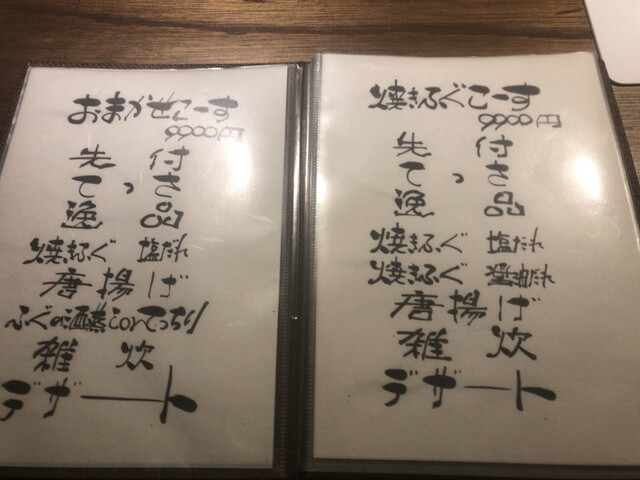 おまかせこーす
9900円
先付
てっさ
逸品
焼きふぐ 塩だれ
唐揚げ
ふぐの酒蒸しorてっちり
雑炊
デザート
焼きふぐこーす
9900円
先付
てっさ
逸品
焼きふぐ 塩だれ
焼きふぐ 醤油だれ
唐揚げ
雑炊
デザート